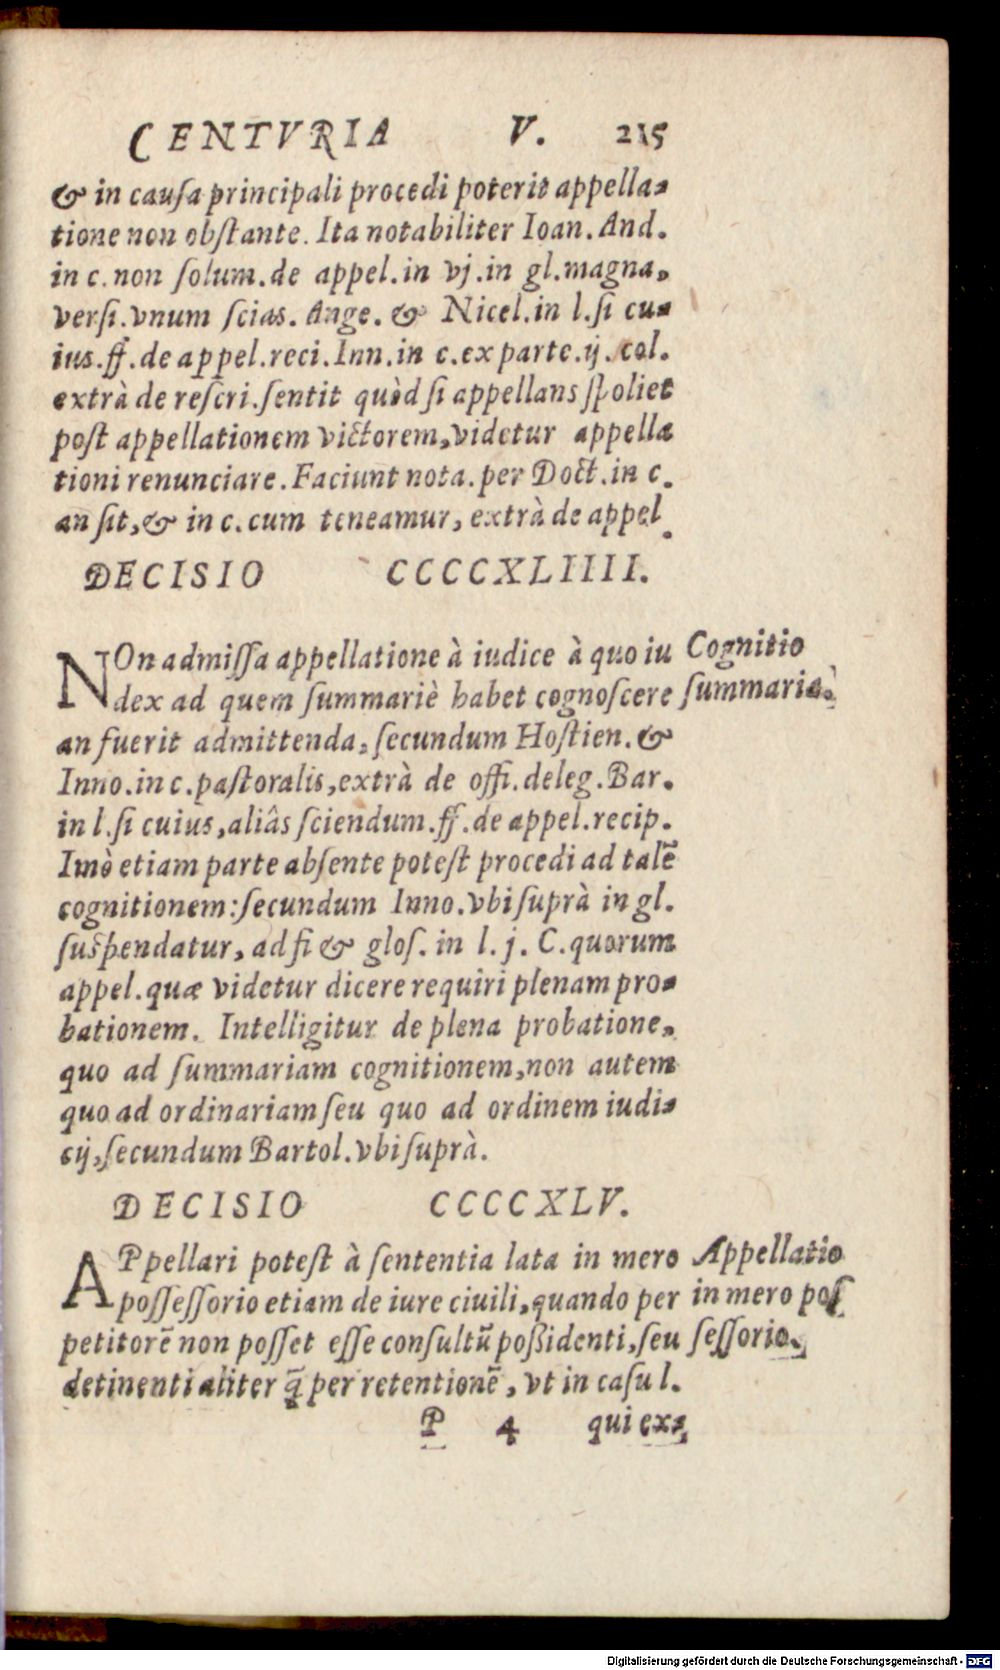 CENTVRIA V. 215
& in causa principali procedi poterit appella-
tione non obstante. Ita notabiliter Ioan. And.
in c. non solum. de appel. in vj. in gl. magna,
versi. vnum scias. Ange. & Nicel. in l. si cu-
ius. ff. de appel. reci. Inn. in c. ex parte. ij. col.
extrà de rescri. sentit quòd si appellans spoliet
post appellationem victorem, videtur appella
tioni renunciare. Faciunt nota. per Doct. in c.
an sit, & in c. cum teneamur, extrà de appel.
DECISIO CCCCXLIIII.
NOn admissa appellatione à iudice à quo iu
dex ad quem summariè habet cognoscere
Cognitio
summaria.
an fuerit admittenda, secundum Hostien. &
Inno. in c. pastoralis, extrà de offi. deleg. Bar.
in l. si cuius, aliâs sciendum. ff. de appel. recip.
Imò etiam parte absente potest procedi ad talē
cognitionem: secundum Inno. vbi suprà in gl.
suspendatur, ad fi & glos. in l. j. C. quorum
appel. quæ videtur dicere requiri plenam pro-
bationem. Intelligitur de plena probatione,
quo ad summariam cognitionem, non autem
quo ad ordinariam seu quo ad ordinem iudi-
cij, secundum Bartol. vbi suprà.
DECISIO CCCCXLV.
APpellari potest à sententia lata in mero
possessorio etiam de iure ciuili, quando per
petitorē non posset esse consultū poßidenti, seu
detinenti aliter q̄ per retentionē, vt in casu l.
Appellatio
in mero pos
sessorio.
P 4 qui ex-
Digitalisierung gefördert durch die Deutsche Forschungsgemeinschaft - DFG